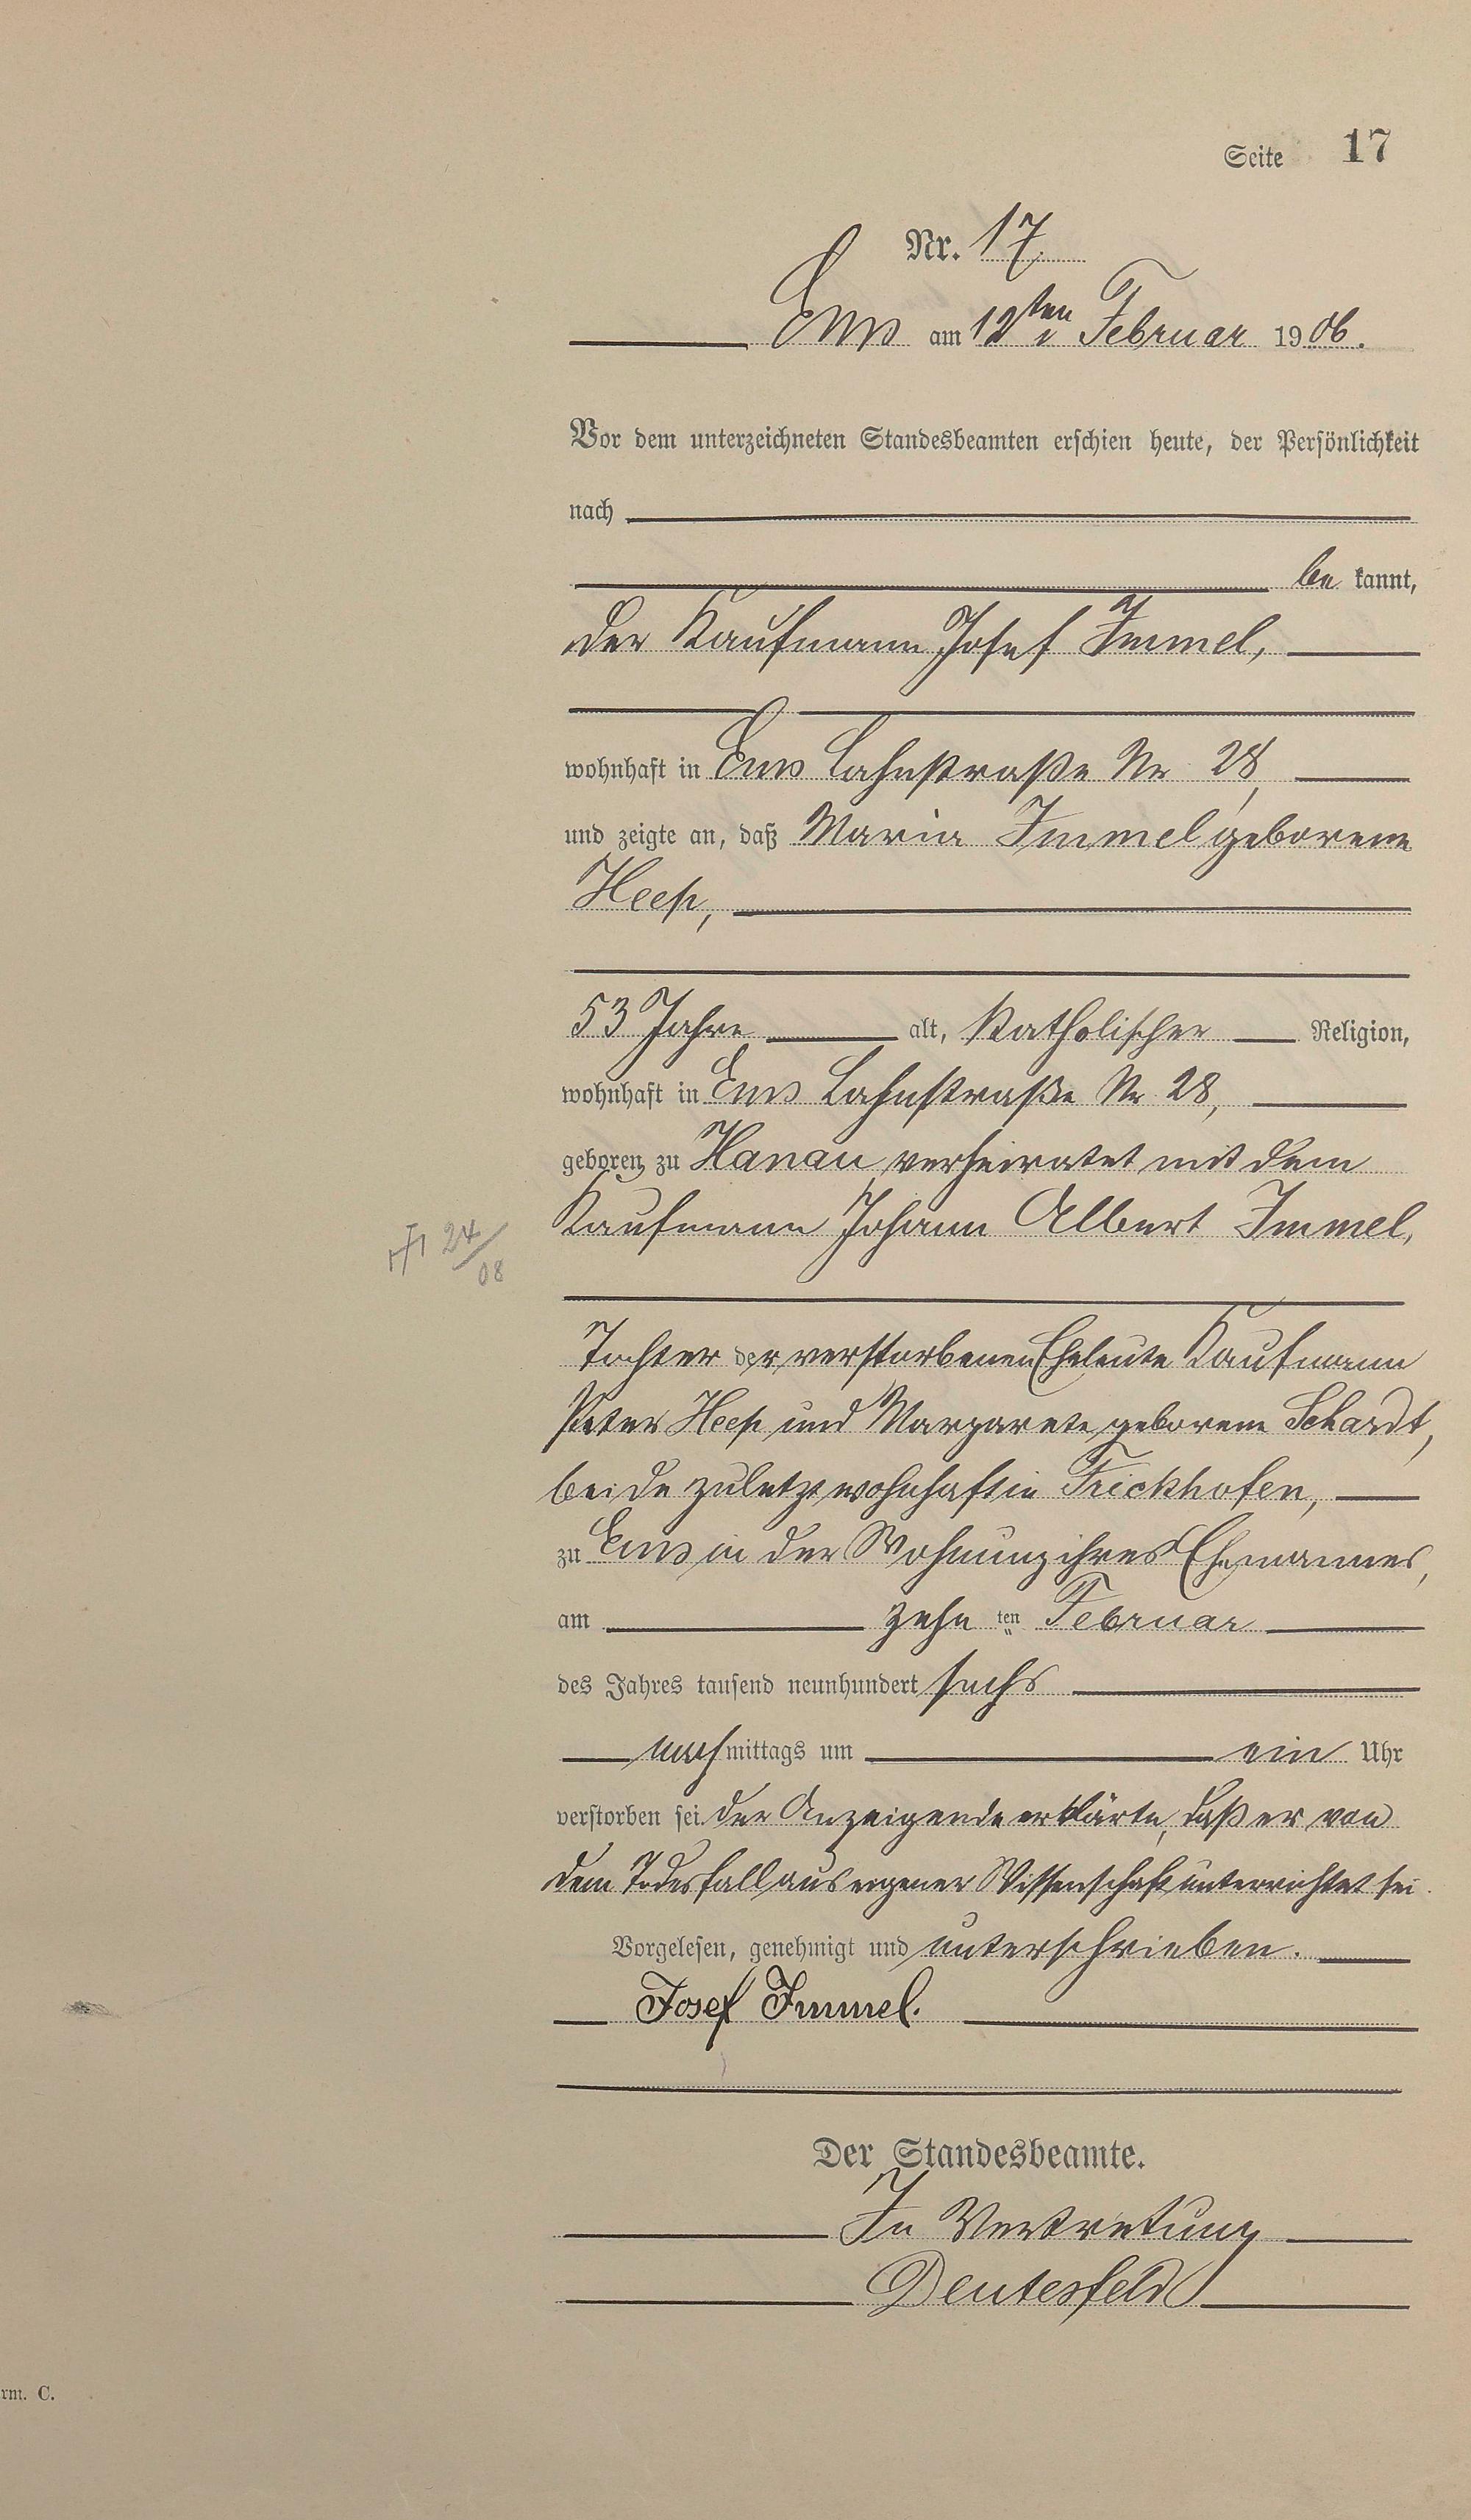 Seite 17
Nr. 17.
Ems am 12ten Februar 1906.
Vor dem unterzeichneten Standesbeamten erschien heute, der Persönlichkeit
nach
be kannt,
der Kaufmann Josef Immel,
wohnhaft in Ems Lahnstraße Nr 28,
und zeigte an, daß Maria Immel geborene
Heep,
53 Jahre alt, Katholischer Religion,
wohnhaft in Ems Lahnstraße Nr 28,
geboren zu Hanau, verheiratet mit dem
Kaufmann Johann Albert Immel,
24/08
Tochter der verstorbenen Eheleute Kaufmann
Peter Heep und Margarete geborene Schardt,
beide zuletzt wohnhaft in Frickhofen,
zu Ems in der Wohnung ihres Ehemannes,
am zehn ten Februar
des Jahres tausend neunhundert sechs
nachmittags um ein Uhr
verstorben sei. Der Anzeigende erklärte, daß er von
dem Todesfall aus eigener Wissenschaft unterrichtet sei.
Vorgelesen, genehmigt und unterschrieben.
Josef Immel.
Der Standesbeamte.
In Vertretung
Deutesfeld
rm. C.